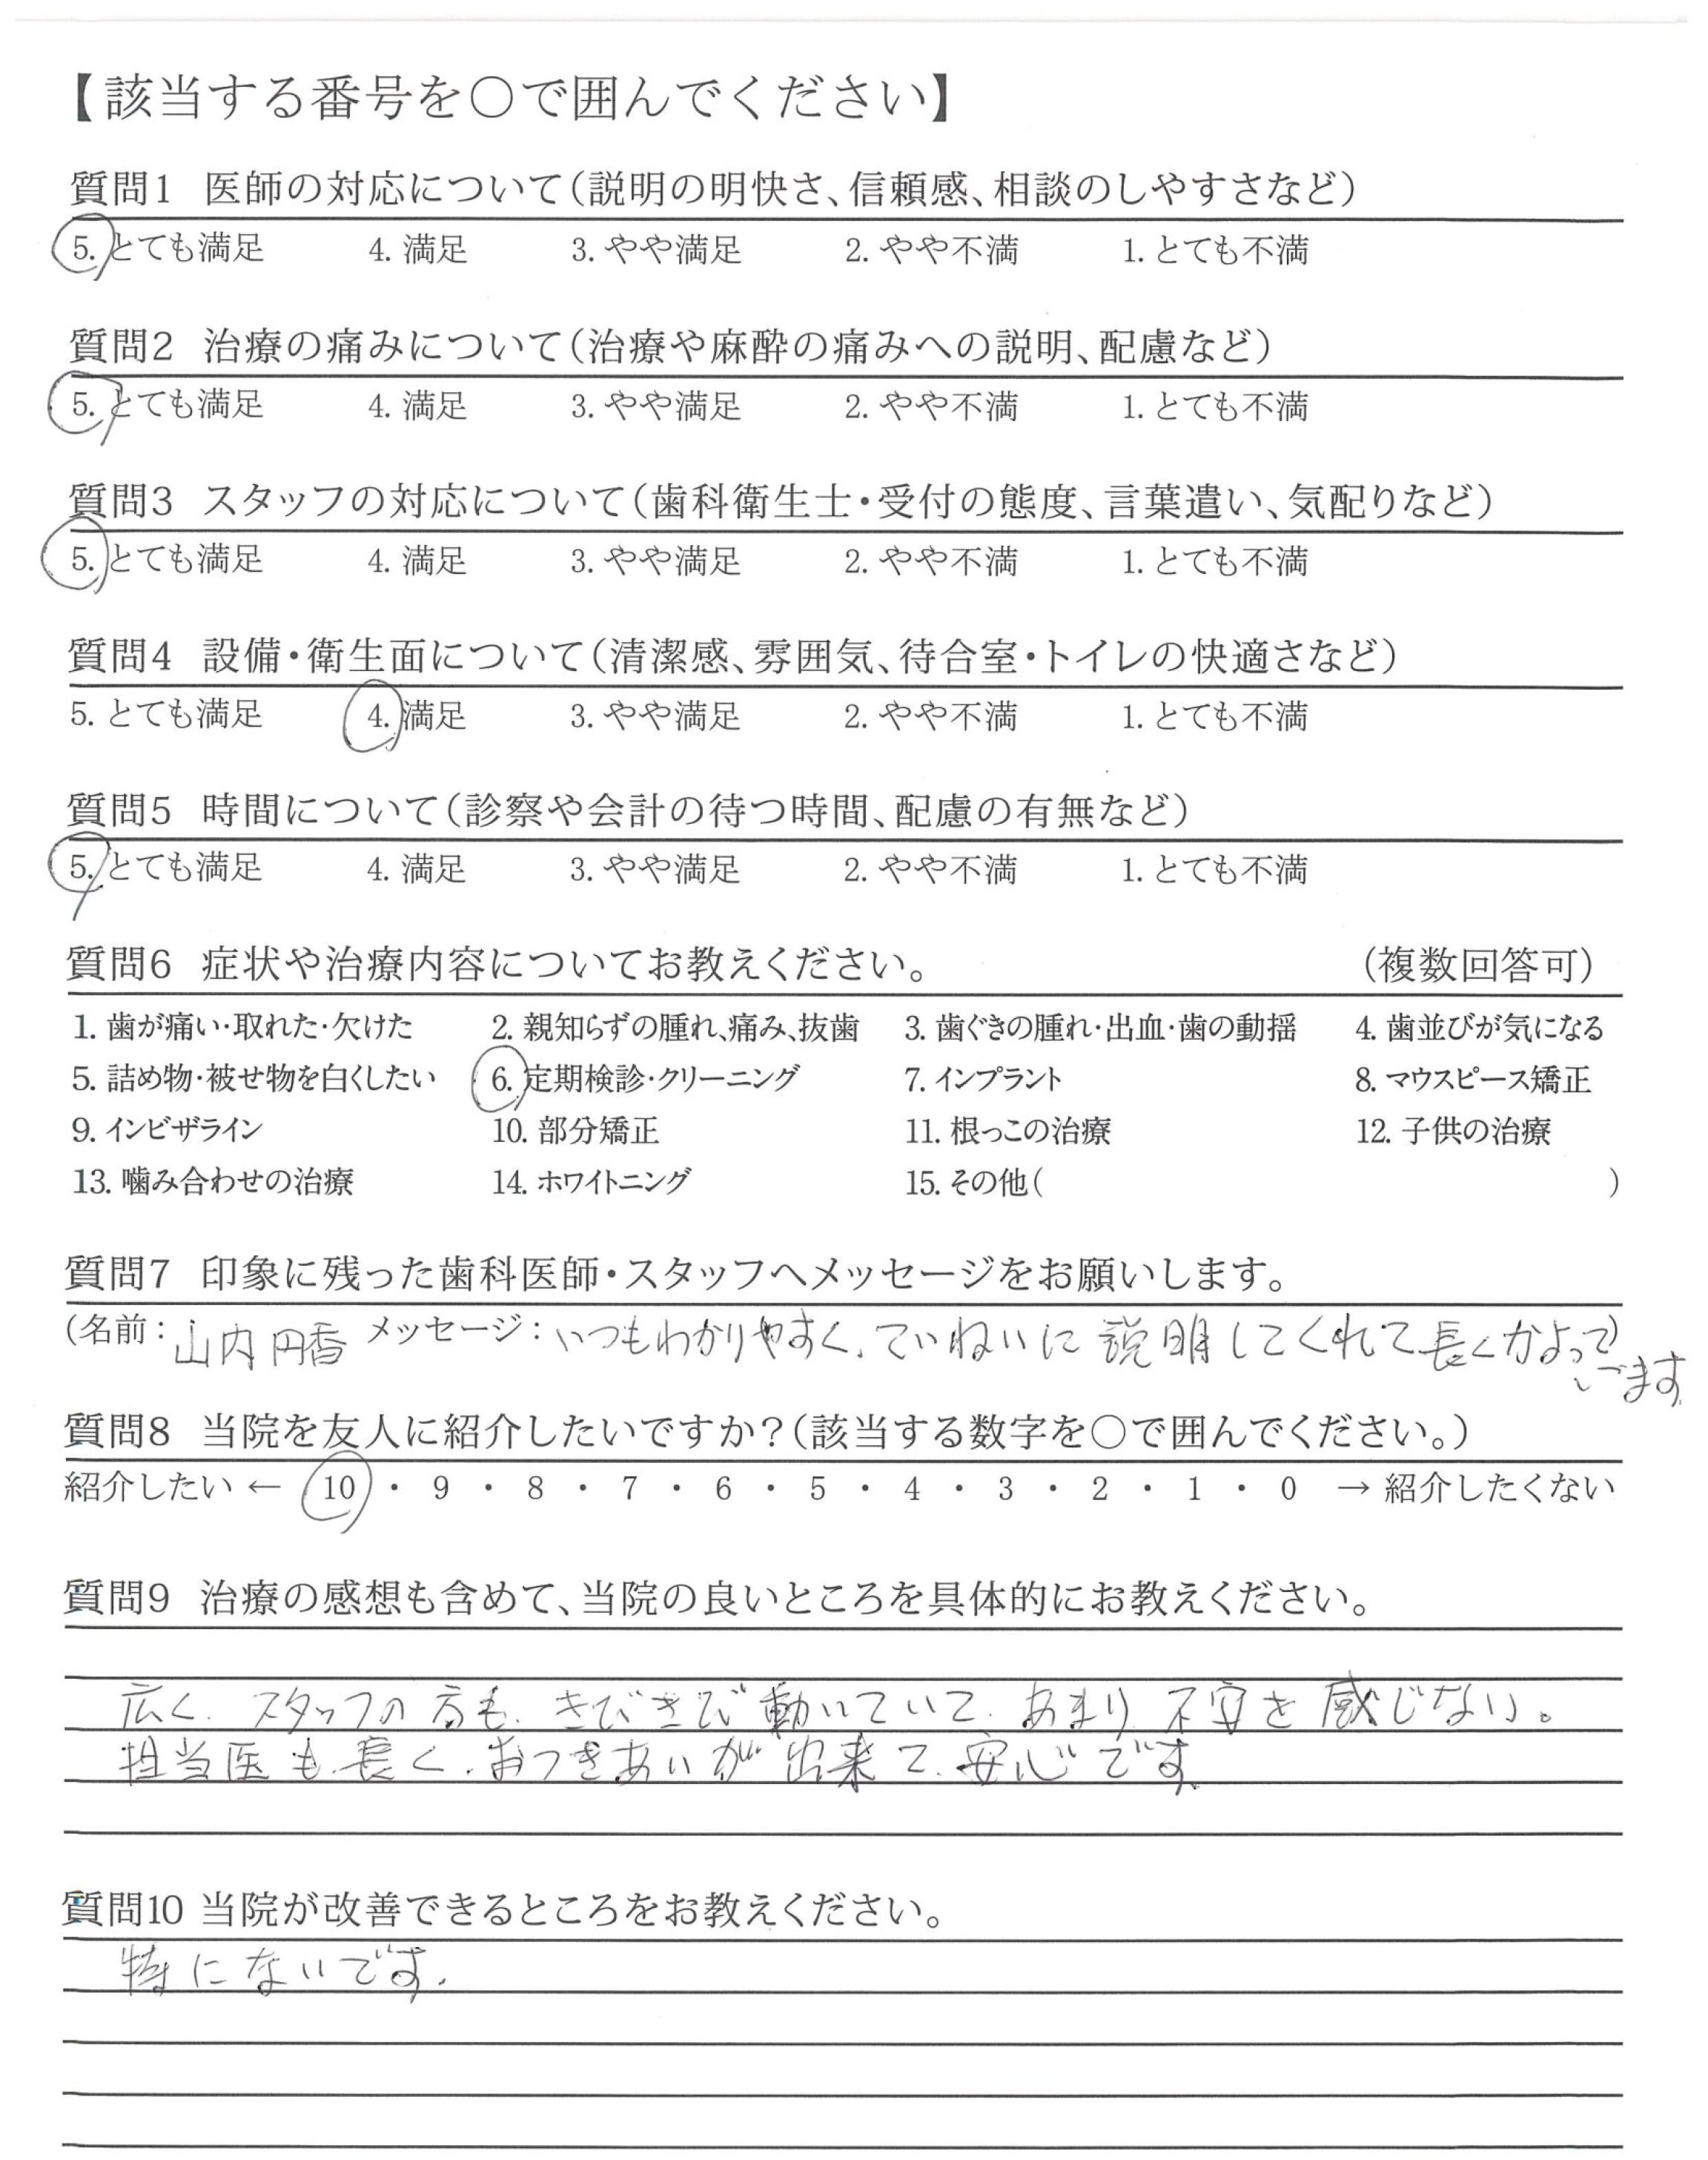 【該当する番号を○で囲んでください】
質問1 医師の対応について（説明の明快さ、信頼感、相談のしやすさなど）
5. とても満足 4. 満足 3. やや満足 2. やや不満 1. とても不満
質問2 治療の痛みについて（治療や麻酔の痛みへの説明、配慮など）
5. とても満足 4. 満足 3. やや満足 2. やや不満 1. とても不満
質問3 スタッフの対応について（歯科衛生士・受付の態度、言葉遣い、気配りなど）
5. とても満足 4. 満足 3. やや満足 2. やや不満 1. とても不満
質問4 設備・衛生面について（清潔感、雰囲気、待合室・トイレの快適さなど）
5. とても満足 4. 満足 3. やや満足 2. やや不満 1. とても不満
質問5 時間について（診察や会計の待つ時間、配慮の有無など）
5. とても満足 4. 満足 3. やや満足 2. やや不満 1. とても不満
質問6 症状や治療内容についてお教えください。 （複数回答可）
1. 歯が痛い・取れた・欠けた 2. 親知らずの腫れ、痛み、抜歯 3. 歯ぐきの腫れ・出血・歯の動揺 4. 歯並びが気になる
5. 詰め物・被せ物を白くしたい 6. 定期検診・クリーニング 7. インプラント 8. マウスピース矯正
9. インビザライン 10. 部分矯正 11. 根っこの治療 12. 子供の治療
13. 噛み合わせの治療 14. ホワイトニング 15. その他（ ）
質問7 印象に残った歯科医師・スタッフへメッセージをお願いします。
（名前：山内円香 メッセージ：いつもわかりやすく、ていねいに説明してくれて長くかよって）
います
質問8 当院を友人に紹介したいですか？（該当する数字を○で囲んでください。）
紹介したい ← 10 ・ 9 ・ 8 ・ 7 ・ 6 ・ 5 ・ 4 ・ 3 ・ 2 ・ 1 ・ 0 → 紹介したくない
質問9 治療の感想も含めて、当院の良いところを具体的にお教えください。
広く、スタッフの方も、きびきび動いていて、あまり不安を感じない。
担当医も、長く、おつきあいが出来て、安心です。
質問10 当院が改善できるところをお教えください。
特にないです。